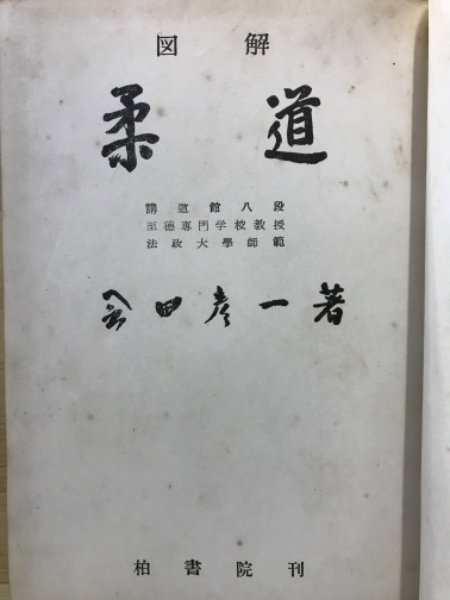 図解
柔道
講道館八段
至徳専門学校教授
法政大學師範
会田彦一著
柏書院刊